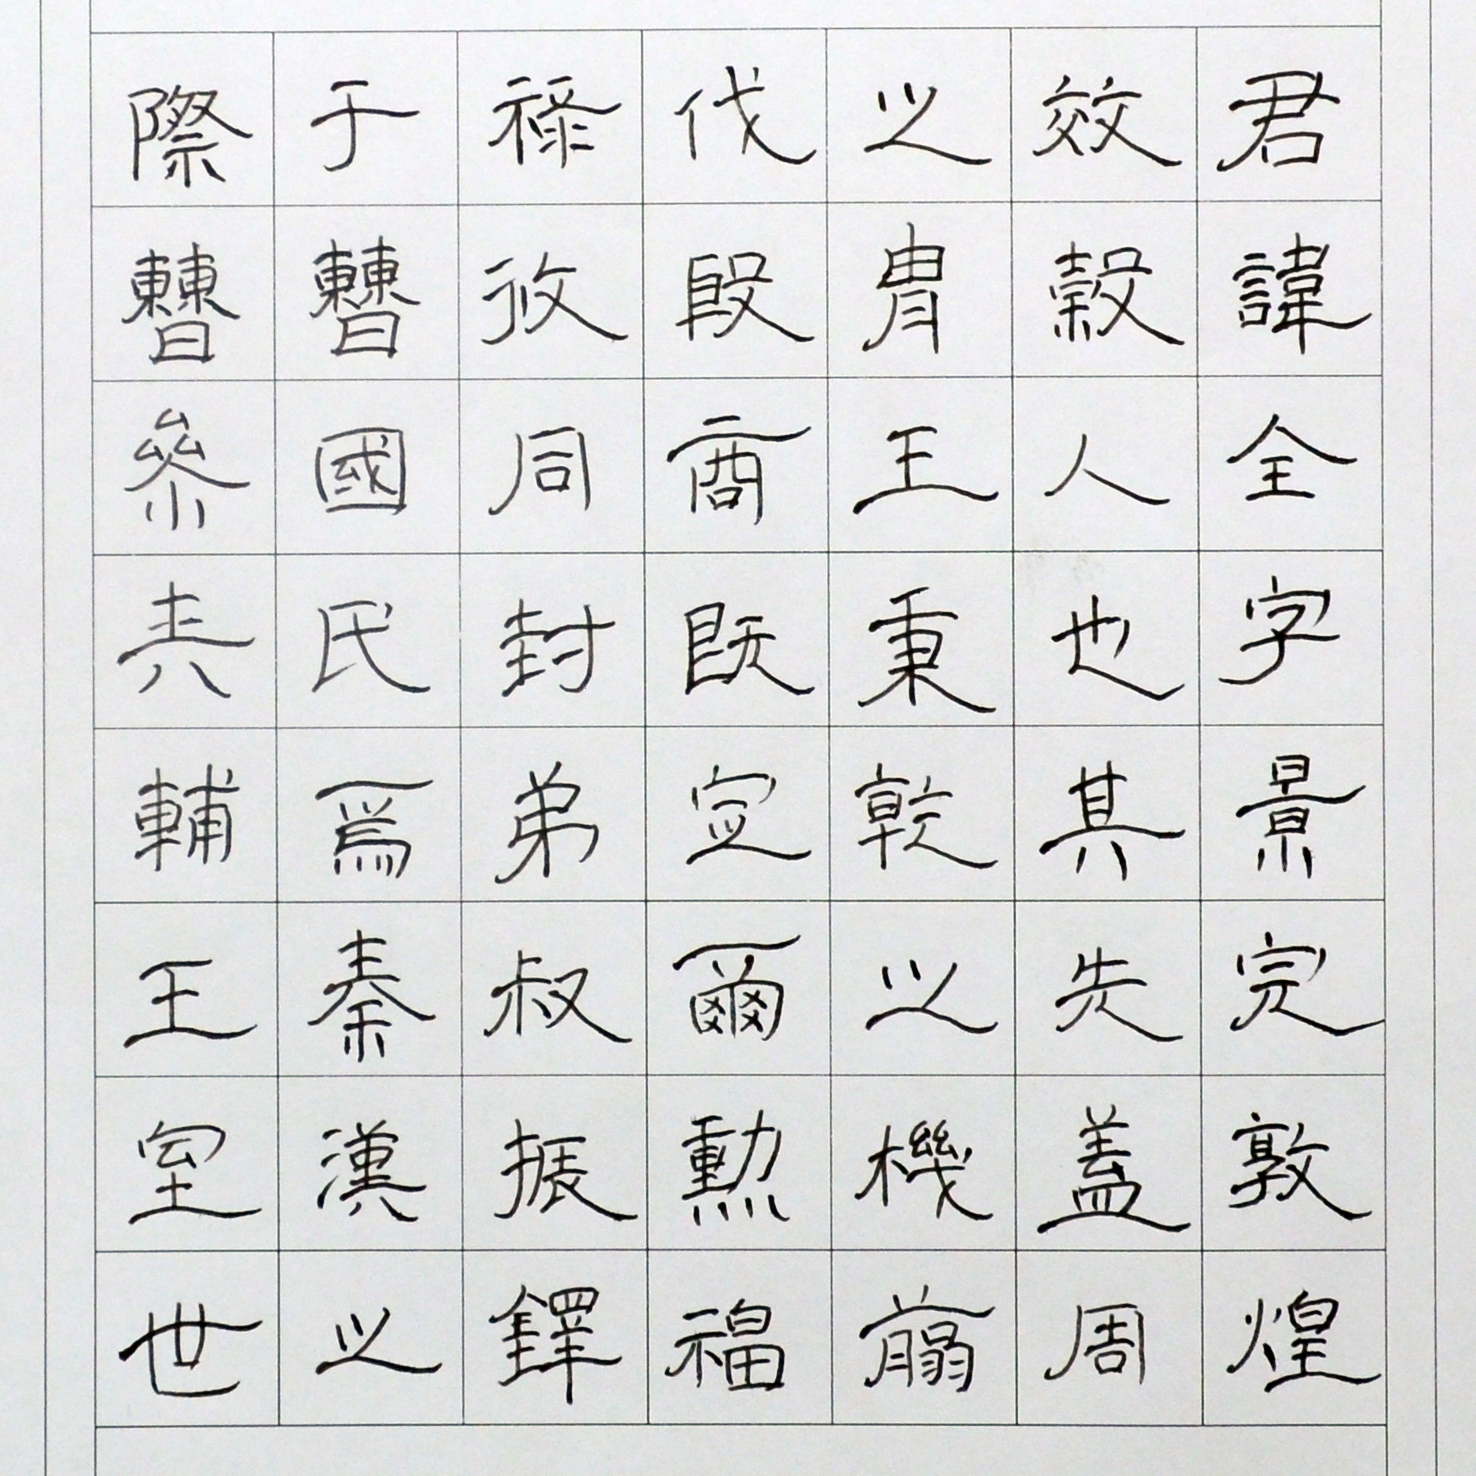 君諱全字景完敦煌
效穀人也其先蓋周
之胄王秉乾之機翦
伐殷商既定爾勲福
祿攸同封弟叔振鐸
于曹國氏焉秦漢之
際曹參夹輔王室世